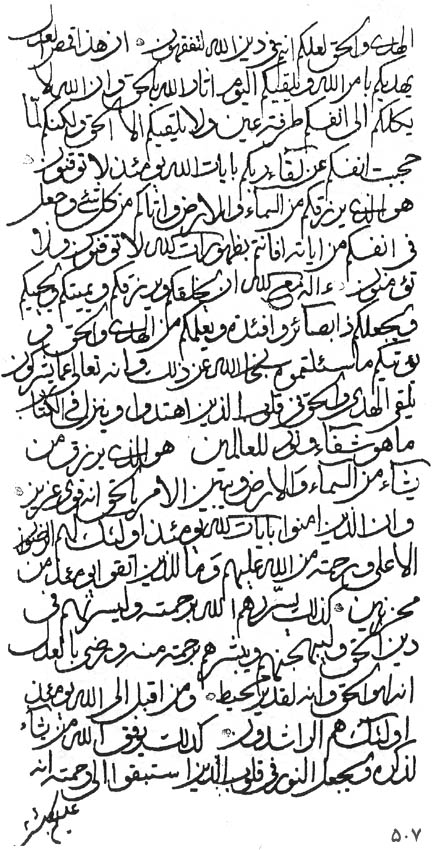 الهدى والحق لعلكم انتم في دين الله لتفقهون ان هذا
يهديكم بامر الله ويلقيكم اليوم اثار الله بالحق وان الله لا
يكلكم الى انفسكم طرفة عين ولا يلقيكم الا الحق ولكنكم لما
حجبت انفسكم عن لقاء ربكم بايات الله يومئذ لا توقنون
هو الذي يرزقكم من السماء والارض واتاكم من كل شئ وجعل
في انفسكم من اياته افانتم بظهورات الله لا توقنون ولا
تؤمنون ءاله مع الله ان يخلقكم ويرزقكم ويميتكم ويحييكم
ويجعلكم ذا بصائر وافئدة ويعلمكم من الهدى والحق و
يؤتيكم ما سئلتموه سبحان الله عن ذلك وانه تعالى عما تشركون
يلقي الهدى والحق في قلوب الذين اهتدوا وينزل في الكتاب
ما هو شفاء ونور للعالمين هو الذي يرزق من
يشاء من السماء والارض ويبين الامر بالحق انه قوي عزيز
وان الذين امنوا بايات الله يومئذ اولئك لهم
الاعلى ورحمة من الله عليهم وما للذين اتقوا يومئذ من
محزنين كذلك يسررهم الله برحمته وليسرنهم في
دين الحق وليبهجنهم ويبشرهم برحمة منه ورضى بالعدل
انه لهو الحق وانه لقدير محيط ومن اقبل الى الله يومئذ
اولئك هم الراشدون كذلك يوفق الله من يشاء
لذكره ويجعل النور في قلوب الذين استبقوا الى رحمته انه
۵۰۷